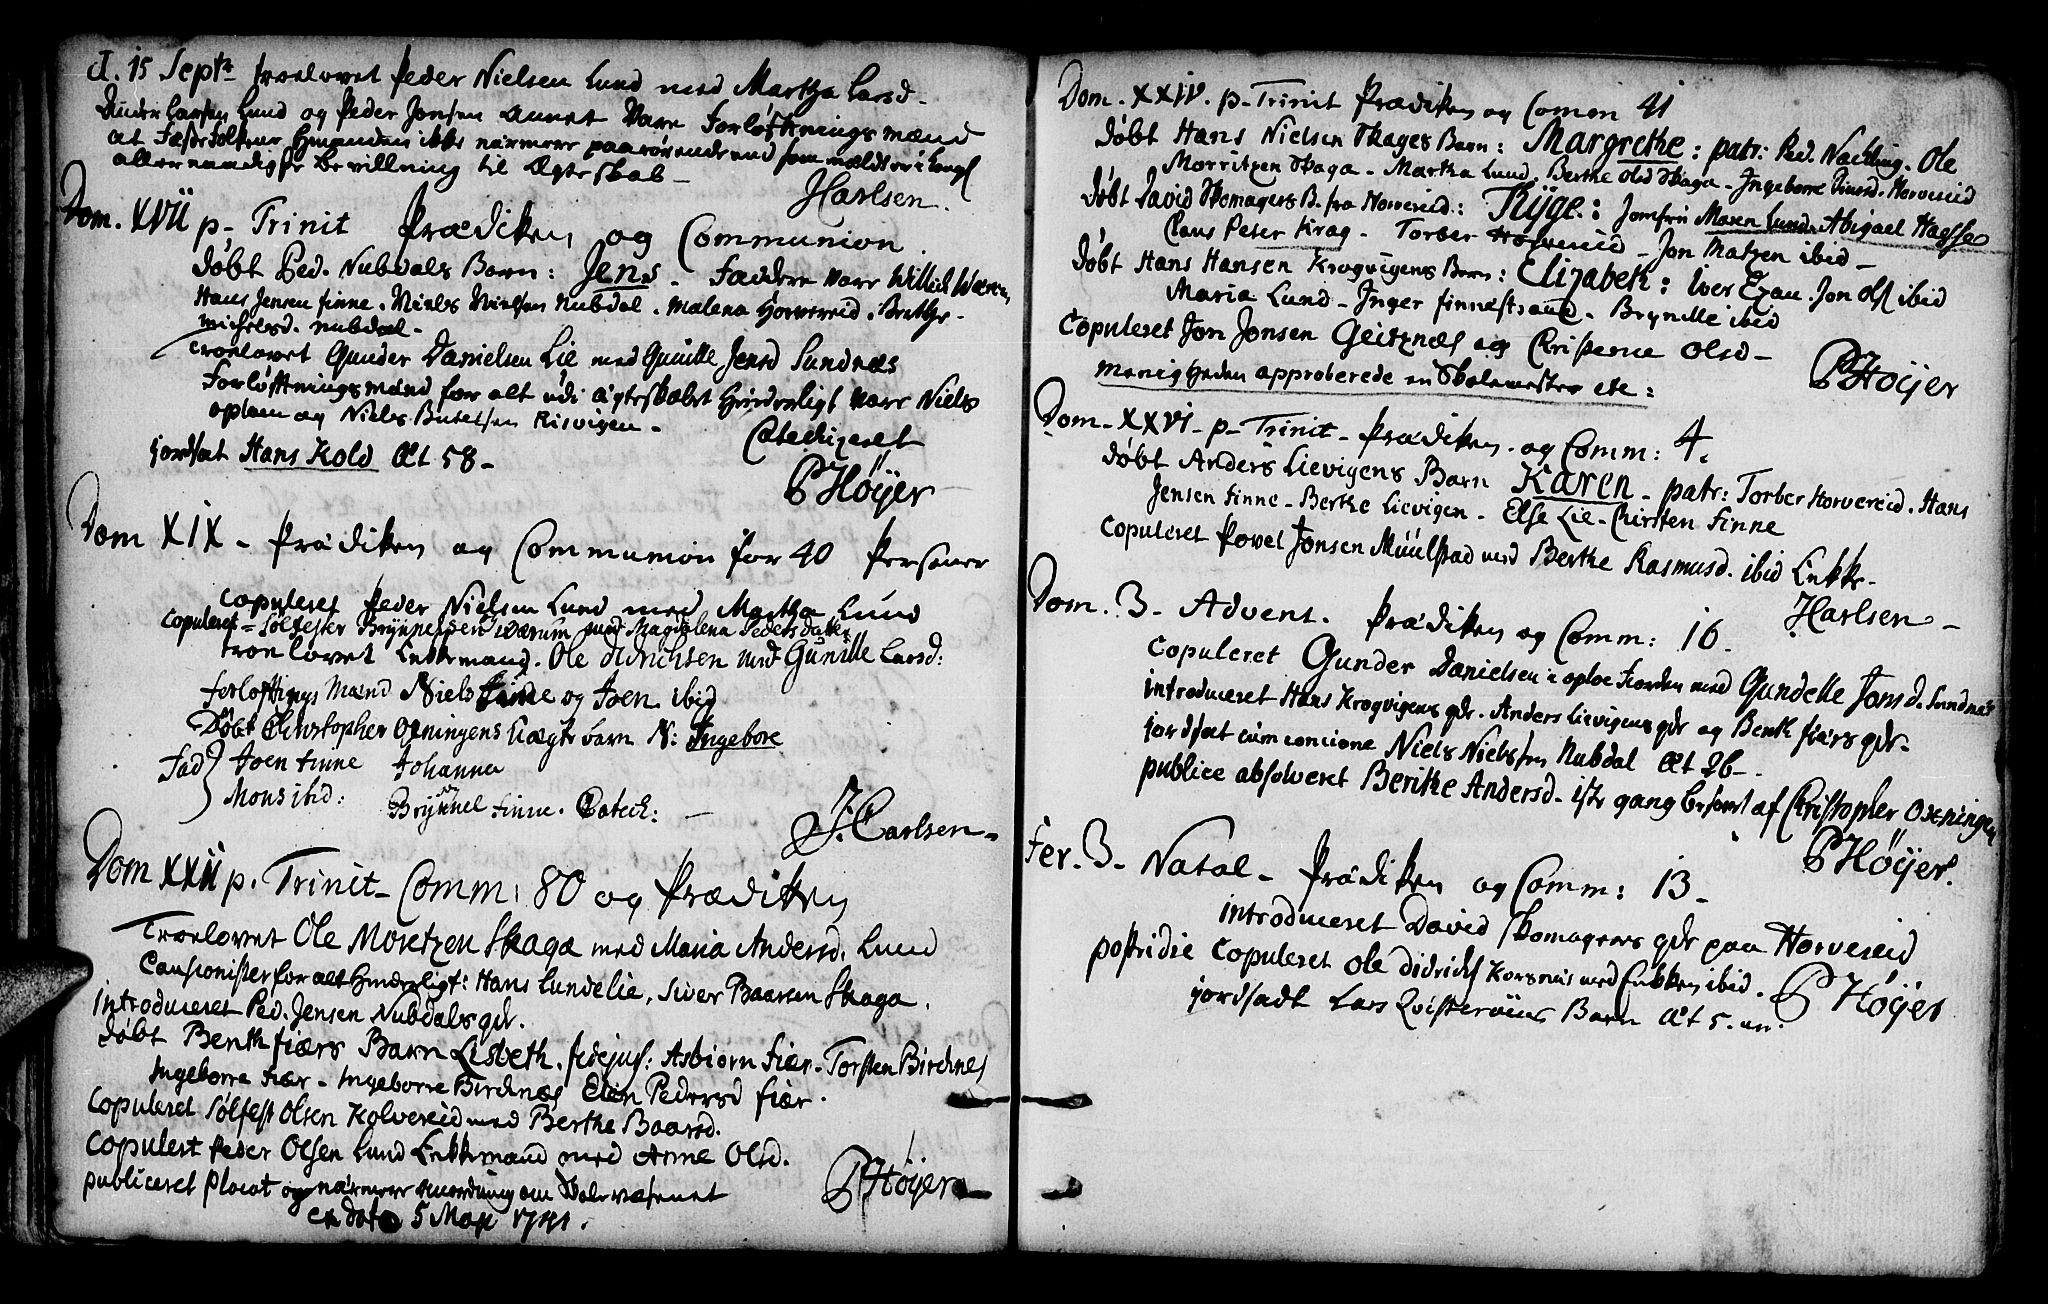 d. 15 Septr troelovet Peder Nielsen Lund med Martha Larsd.
Lund og Peder Jonsen annet Vare Forløftningsmænd
at Hmanden ikke nærmere paarørende end som meldt er i kongl
allernaadigste bevillning til Ægteskab
JCarlsen.
Dom. XVII p. Trinit Prædiken og Communion.
døbt Ped. Nubdals Barn: Jens. Faddere vare Willich Wærum,
Hans Jensen finne. Niels Nielsen Nubdal. Malena Horvereid. Birthe
michelsd. nubdal.
troelovet Gunder Danielsen Lie med Gunille Jensd Sundnæs
Forløftningsmænd for alt udi ægteskabet Hinderligt vare Niels
oploen og Niels Risvigen.
Catechizeret
jordsat Hans Kold Æt 58
PHøijer
Dom XIX. Prædiken og Communion for 40 Personer
Copuleret Peder Nielsen Lund med Martha Lund
Copuleret Sølfester Wærum med Magdalena Peders datter
troelovet Enkkemand. Ole didrichsen med Gunille Larsd:
forløftnings Mænd Niels finne og Joen ibid
Døbt Christopher Oxningens Uægte barn N: Ingebore
Fad} Joen finne Johanna
Mons ibid: Brynnel finne. Catech:
J. Carlsen
Dom XXII p. Trinit Comm: 80 og Prædiken
Troelovet Ole Moretzen Skaga med Maria Andersd. Lund
Causionister for alt Hinderligt: Hans Lundelie, Siver Baarsen Skaga.
introduceret Ped. Jensen Nubdals qdr.
døbt Benth fiærs Barn Lisbeth. fidejuss: Asbiorn Fiær. Torsten Birchnes
Ingeborre fiær. Ingeborre Birchnæs Elen Pedersd fiær.
Copuleret Sølfest Olsen Kolvereid med Berthe Baarsd.
Copulert Peder Olsen Lund Enkkemand med Anne Olsd.
publiceret placat og nærmere anordning om Skolevæsenet
ex dato 5 Maji 1741.
PHøijer
Dom. XXIV. p. Trinit Prædiken og Comm 41
døbt Hans Nielsen Skages Barn: Margrethe: patr: Ped. Nachling. Ole
Morritzen Skaga. Martha Lund. Berthe Olsd Skaga. Ingeborre Horvereid
døbt David Skomagers B. fra Horvereid: Ryge: Jomfru Maren Lund. Abigael Hassse
Claus Peter Krag. Torber Horvereid. Jon Matzen ibid
døbt Hans Hansen Krogvigens Barn: Elizabeth: Iver Jon Ols ibid
Maria Lund. Inger finnestrand. Brynille ibid
Copuleret Jon Jonsen Geitznæs og Christene Olsd
menigheden approberede en Skolemester etc:
PHoijer
Dom. XXVI. p. Trinit. Prædiken. og Comm: 4.
døbt Anders Lievigens Barn Karen. patr: Torber Horvereid. Hans
Jensen finne. Berthe Lievigen. Else Lie. Chirsten finne
Copuleret Povel Jonsen Muulstad med Berthe Rasmusd. ibid Enkke.
JCarlsen
Dom. 3. Advent. Prædiken og Comm: 16.
Copuleret Gunder Danielsen i oploe Fiorden med Gundelle Jonsd. Sundnæs
introduceret Hans Krogvigens qdr. Anders Lievigens qdr og Benth fiærs qdr.
jordsat cum concione Niels Nielssen Nubdal Æt 26
publice absolveret Benthe Andersd. 1ste gang besovet af Christopher Oxningen
PHøijer.
Fer. 3. Natal. Prædiken og Comm: 13.
introduceret David Skomagers qdr paa Horvereid
postridie Copuleret Ole didrichs Korsnæs med Enkken ibid.
jordsadt Lars Qvisterøens Barn Æt 5. an:
PHøijer